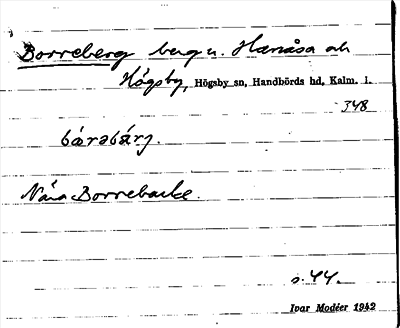 Borreberg berg u. Hanåsa ch
Högsby, Högsby sn, Handbörds hd, Kalm. l.
348
bǽrabǽrj.
Nära Borrebacke.
s. 44.
Ivar Modéer 1942